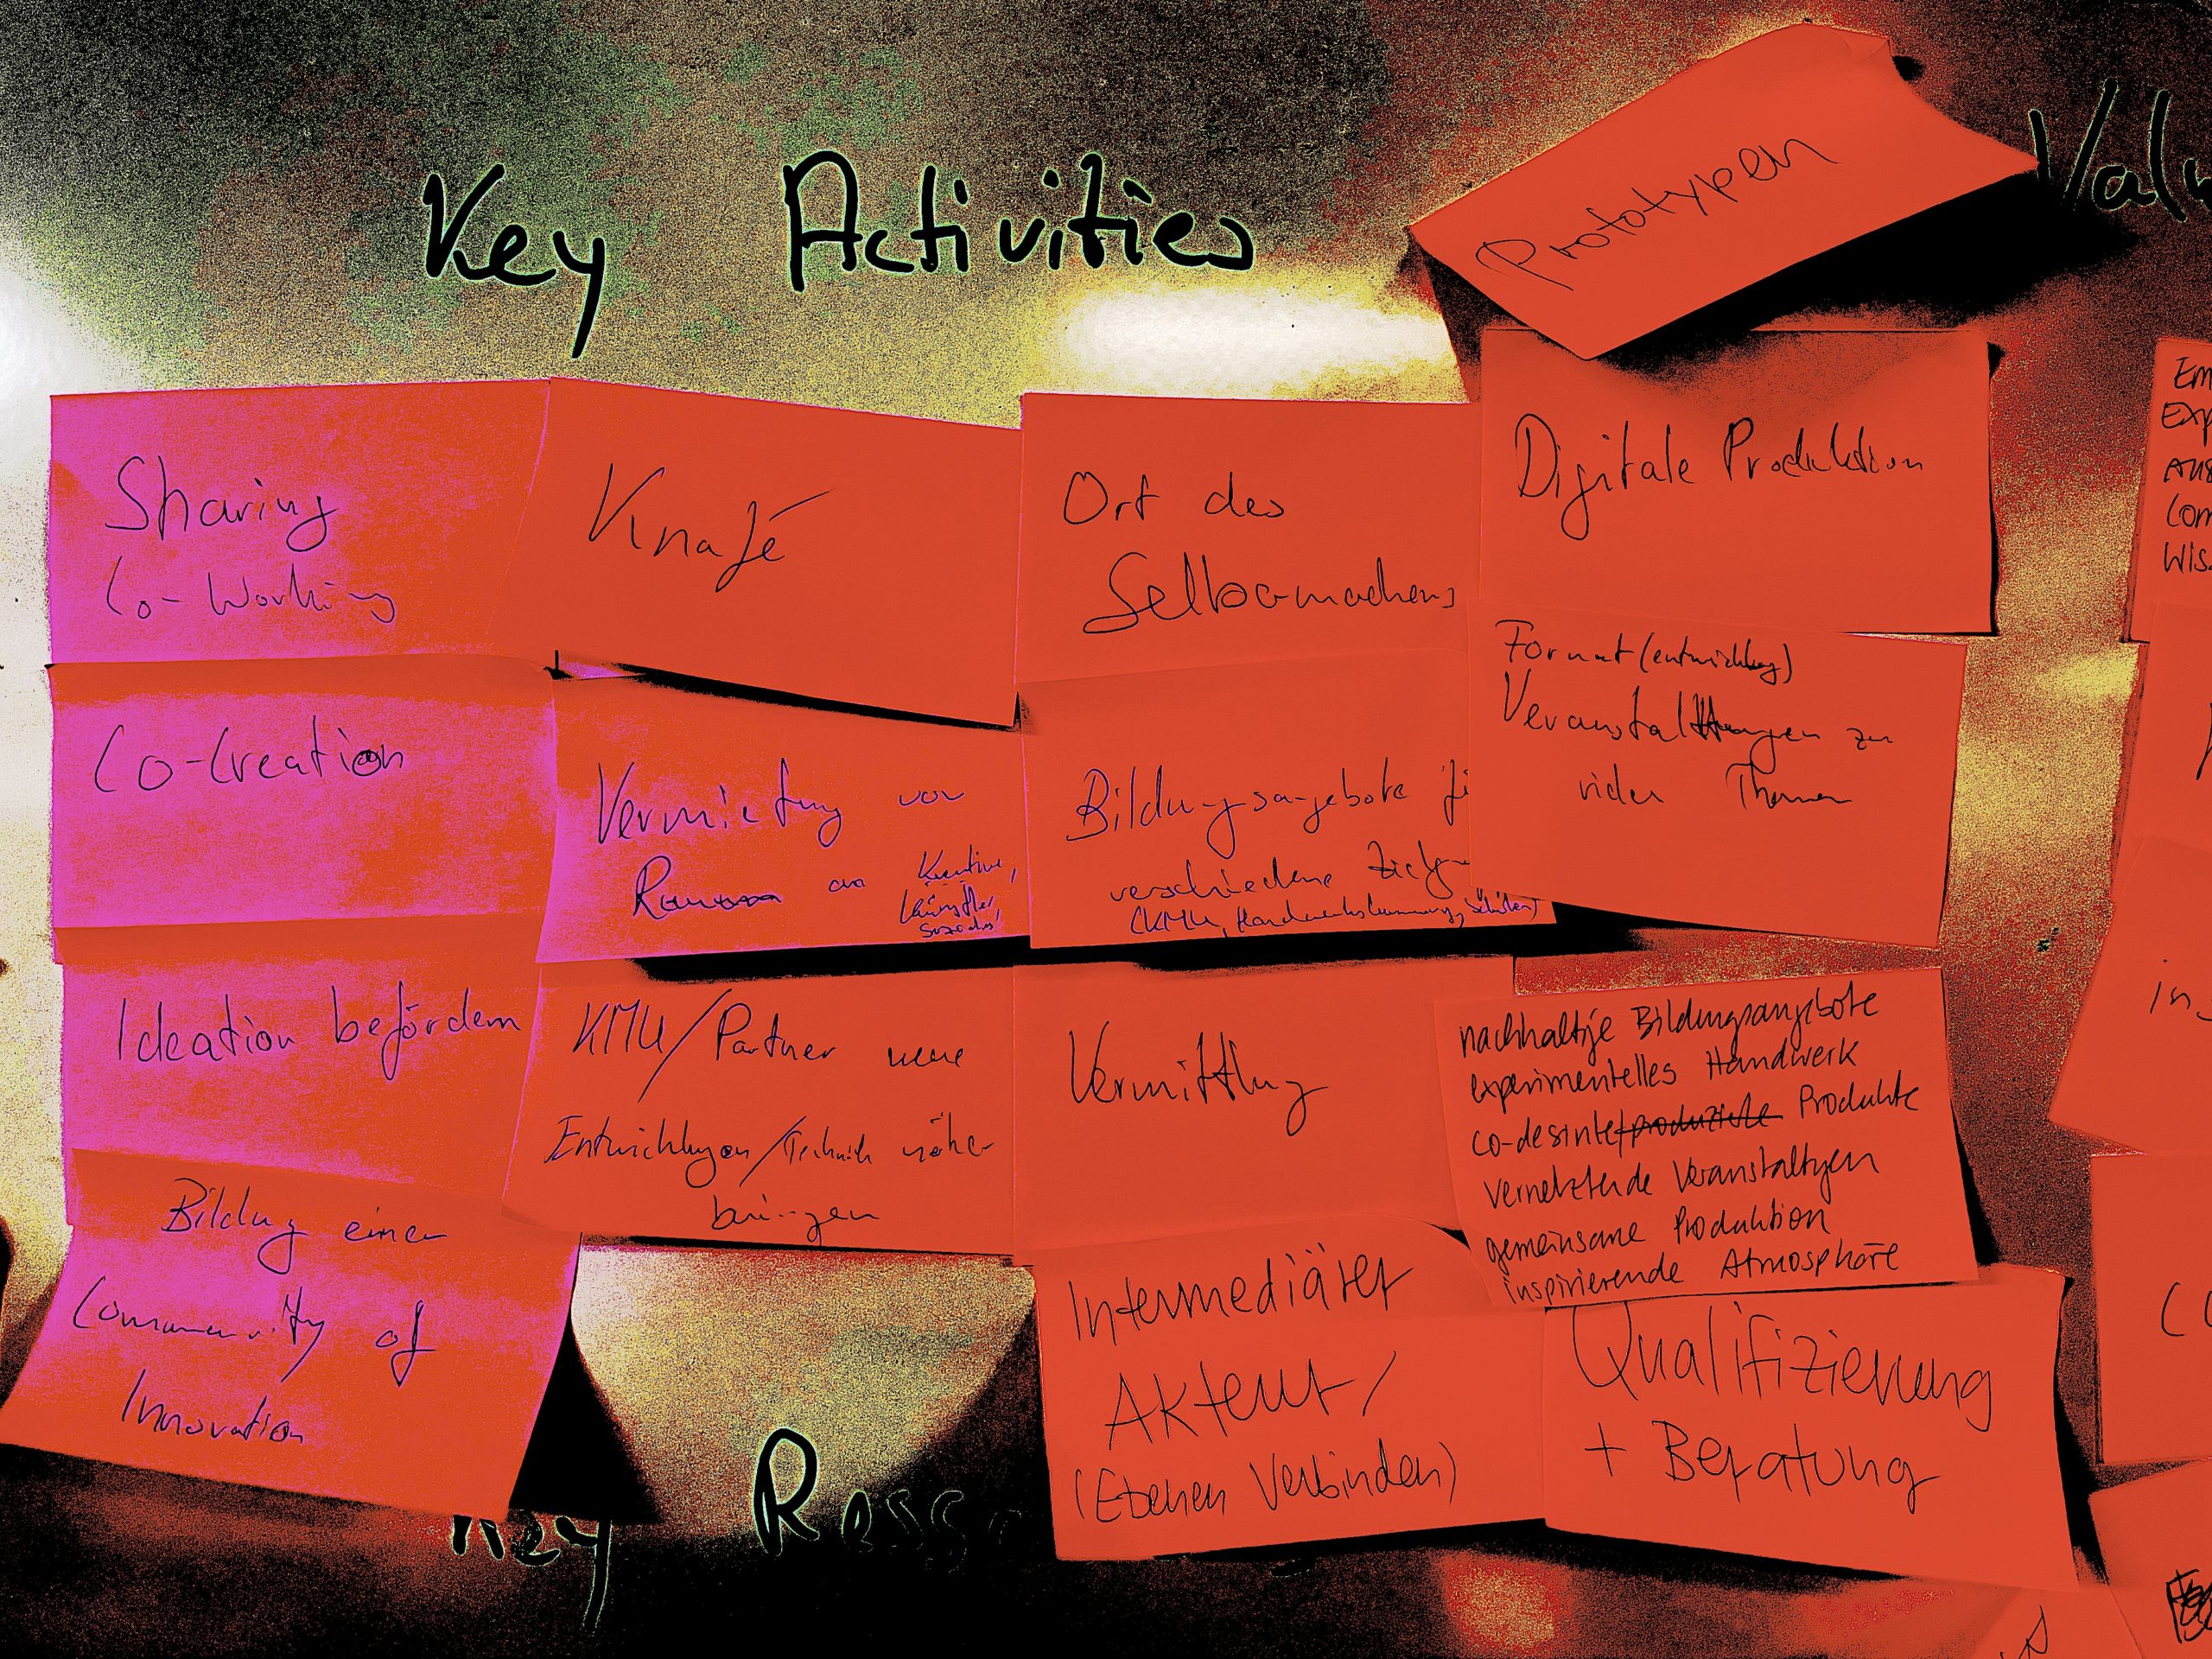 Key Activities
Valu
Prototypen
Sharing
Co-Working
Knafé
Ort des
Selbermachens
Digitale Produktion
Co-Creation
Vermietung von
Räumen an Kreative,
Künstler,
Bildungsangebote fü
verschiedene Zielg
(KMU, Handwerkskammer, Schüler)
Format (entwicklung)
Veranstaltungen zu
vielen Themen
Ideation befördern
KMU/Partner neue
Entwicklungen/Technik näher
bringen
Vermittlung
nachhaltige Bildungsangebote
experimentelles Handwerk
co-desinte/produzierte Produkte
vernetzende Veranstaltgen
gemeinsame Produktion
inspirierende Atmosphäre
Bildung einer
Community of
Innovation
Intermediärer
Akteur/
(Ebenen Verbinden)
Qualifizierung
+ Beratung
Key Resso
Em
Exp
Aus
Com
Wis
in
Co